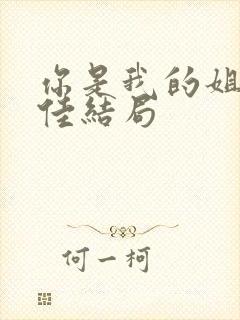 你是我的姐
佳结局
何一柯